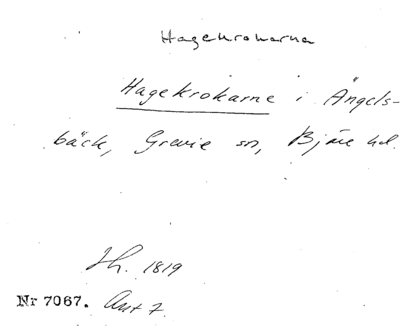 Hagekrokarna
Hagekrokarne i Ängels-
bäck, Grevie sn, Bjäre hd.
Jh. 1819
Nr 7067. Ant 7.